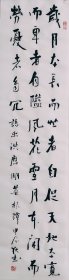 歲月本長而忙者自促天地本寬
而卑者自隘風花雪月本閒而
勞擾者自冗 洪應明菜根譚